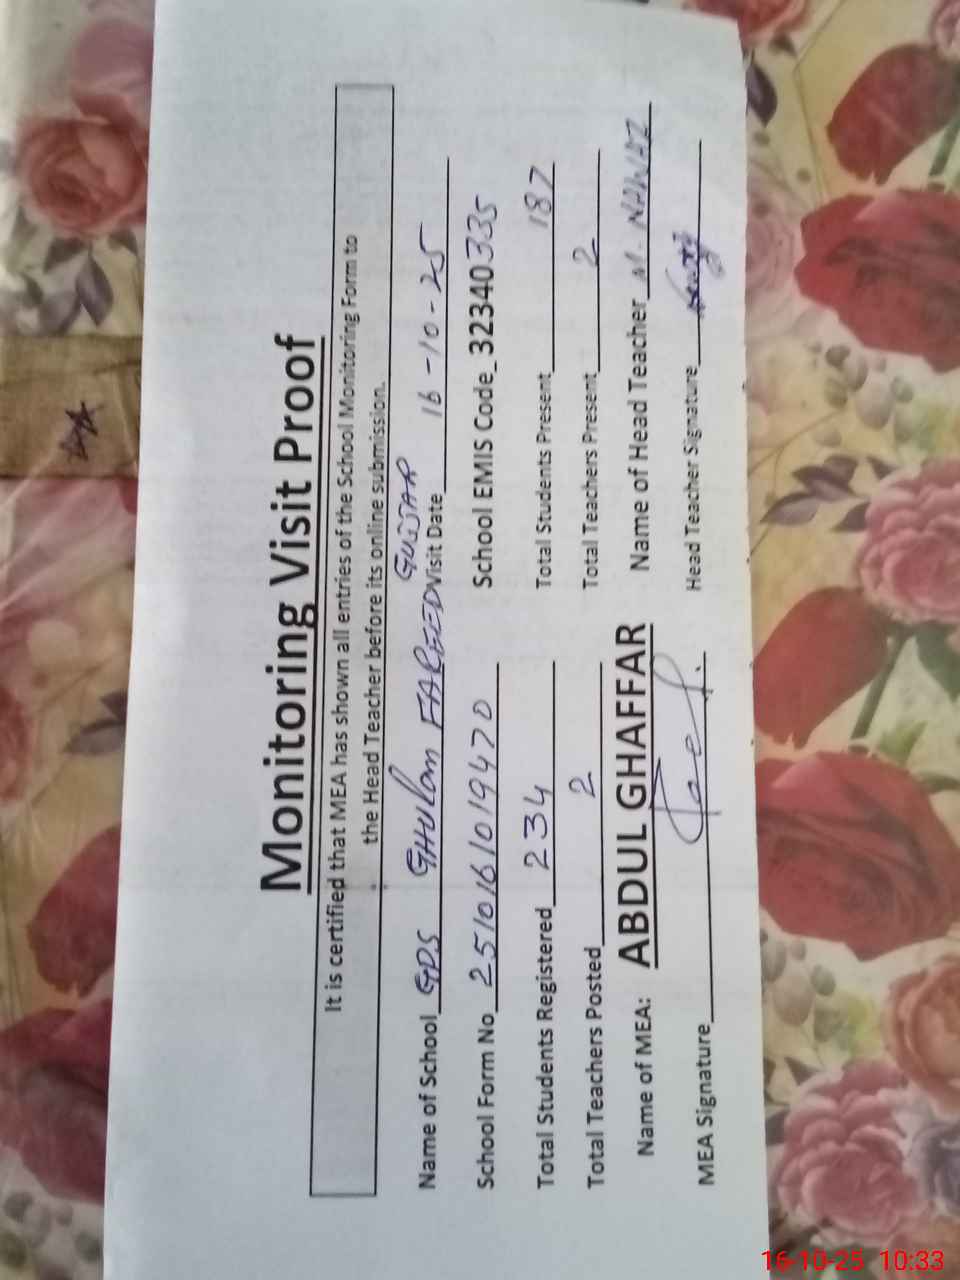 Monitoring Visit Proof
It is certified that MEA has shown all entries of the School Monitoring Form to
the Head Teacher before its online submission.
Name of School GPS GHULam FAREED GUJJAR Visit Date 16-10-25
School Form No 25101610194720 School EMIS Code 32340335
Total Students Registered 234 Total Students Present 187
Total Teachers Posted 2 Total Teachers Present 2
Name of MEA: ABDUL GHAFFAR Name of Head Teacher M. NAWAZ
MEA Signature Head Teacher Signature
16-10-25 10:33